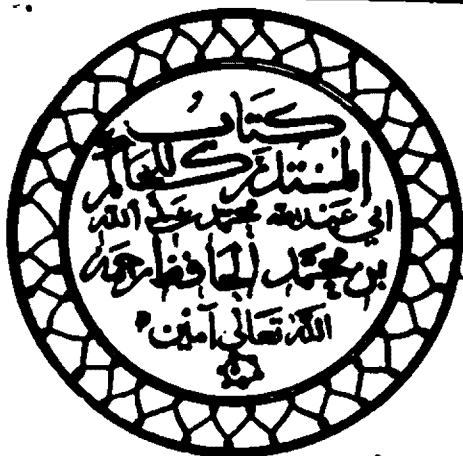 كتاب
المستدرك للحاكم
أبي عبد الله محمد بن عبد الله
بن محمد الحافظ رحمه
الله تعالى آمين